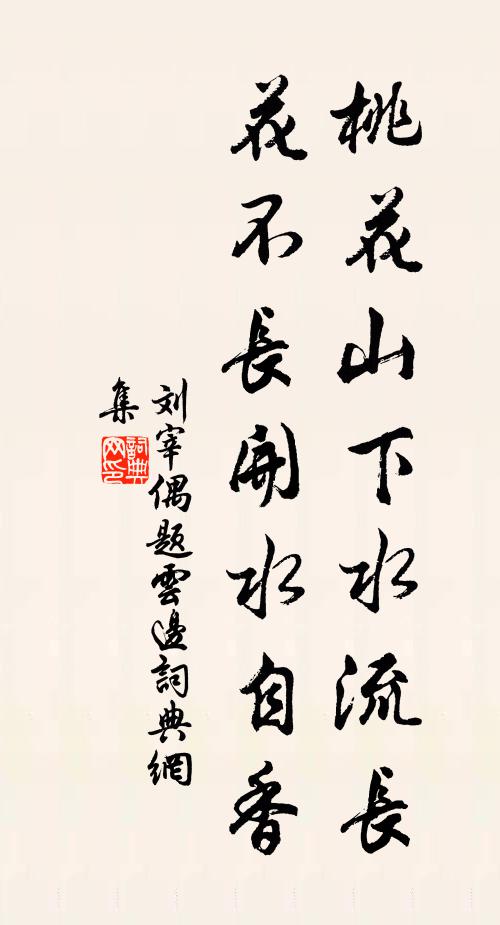 桃花山下水流長
花不長開水自香
刘宰偶題雲邊詞典網
集
詞典网印